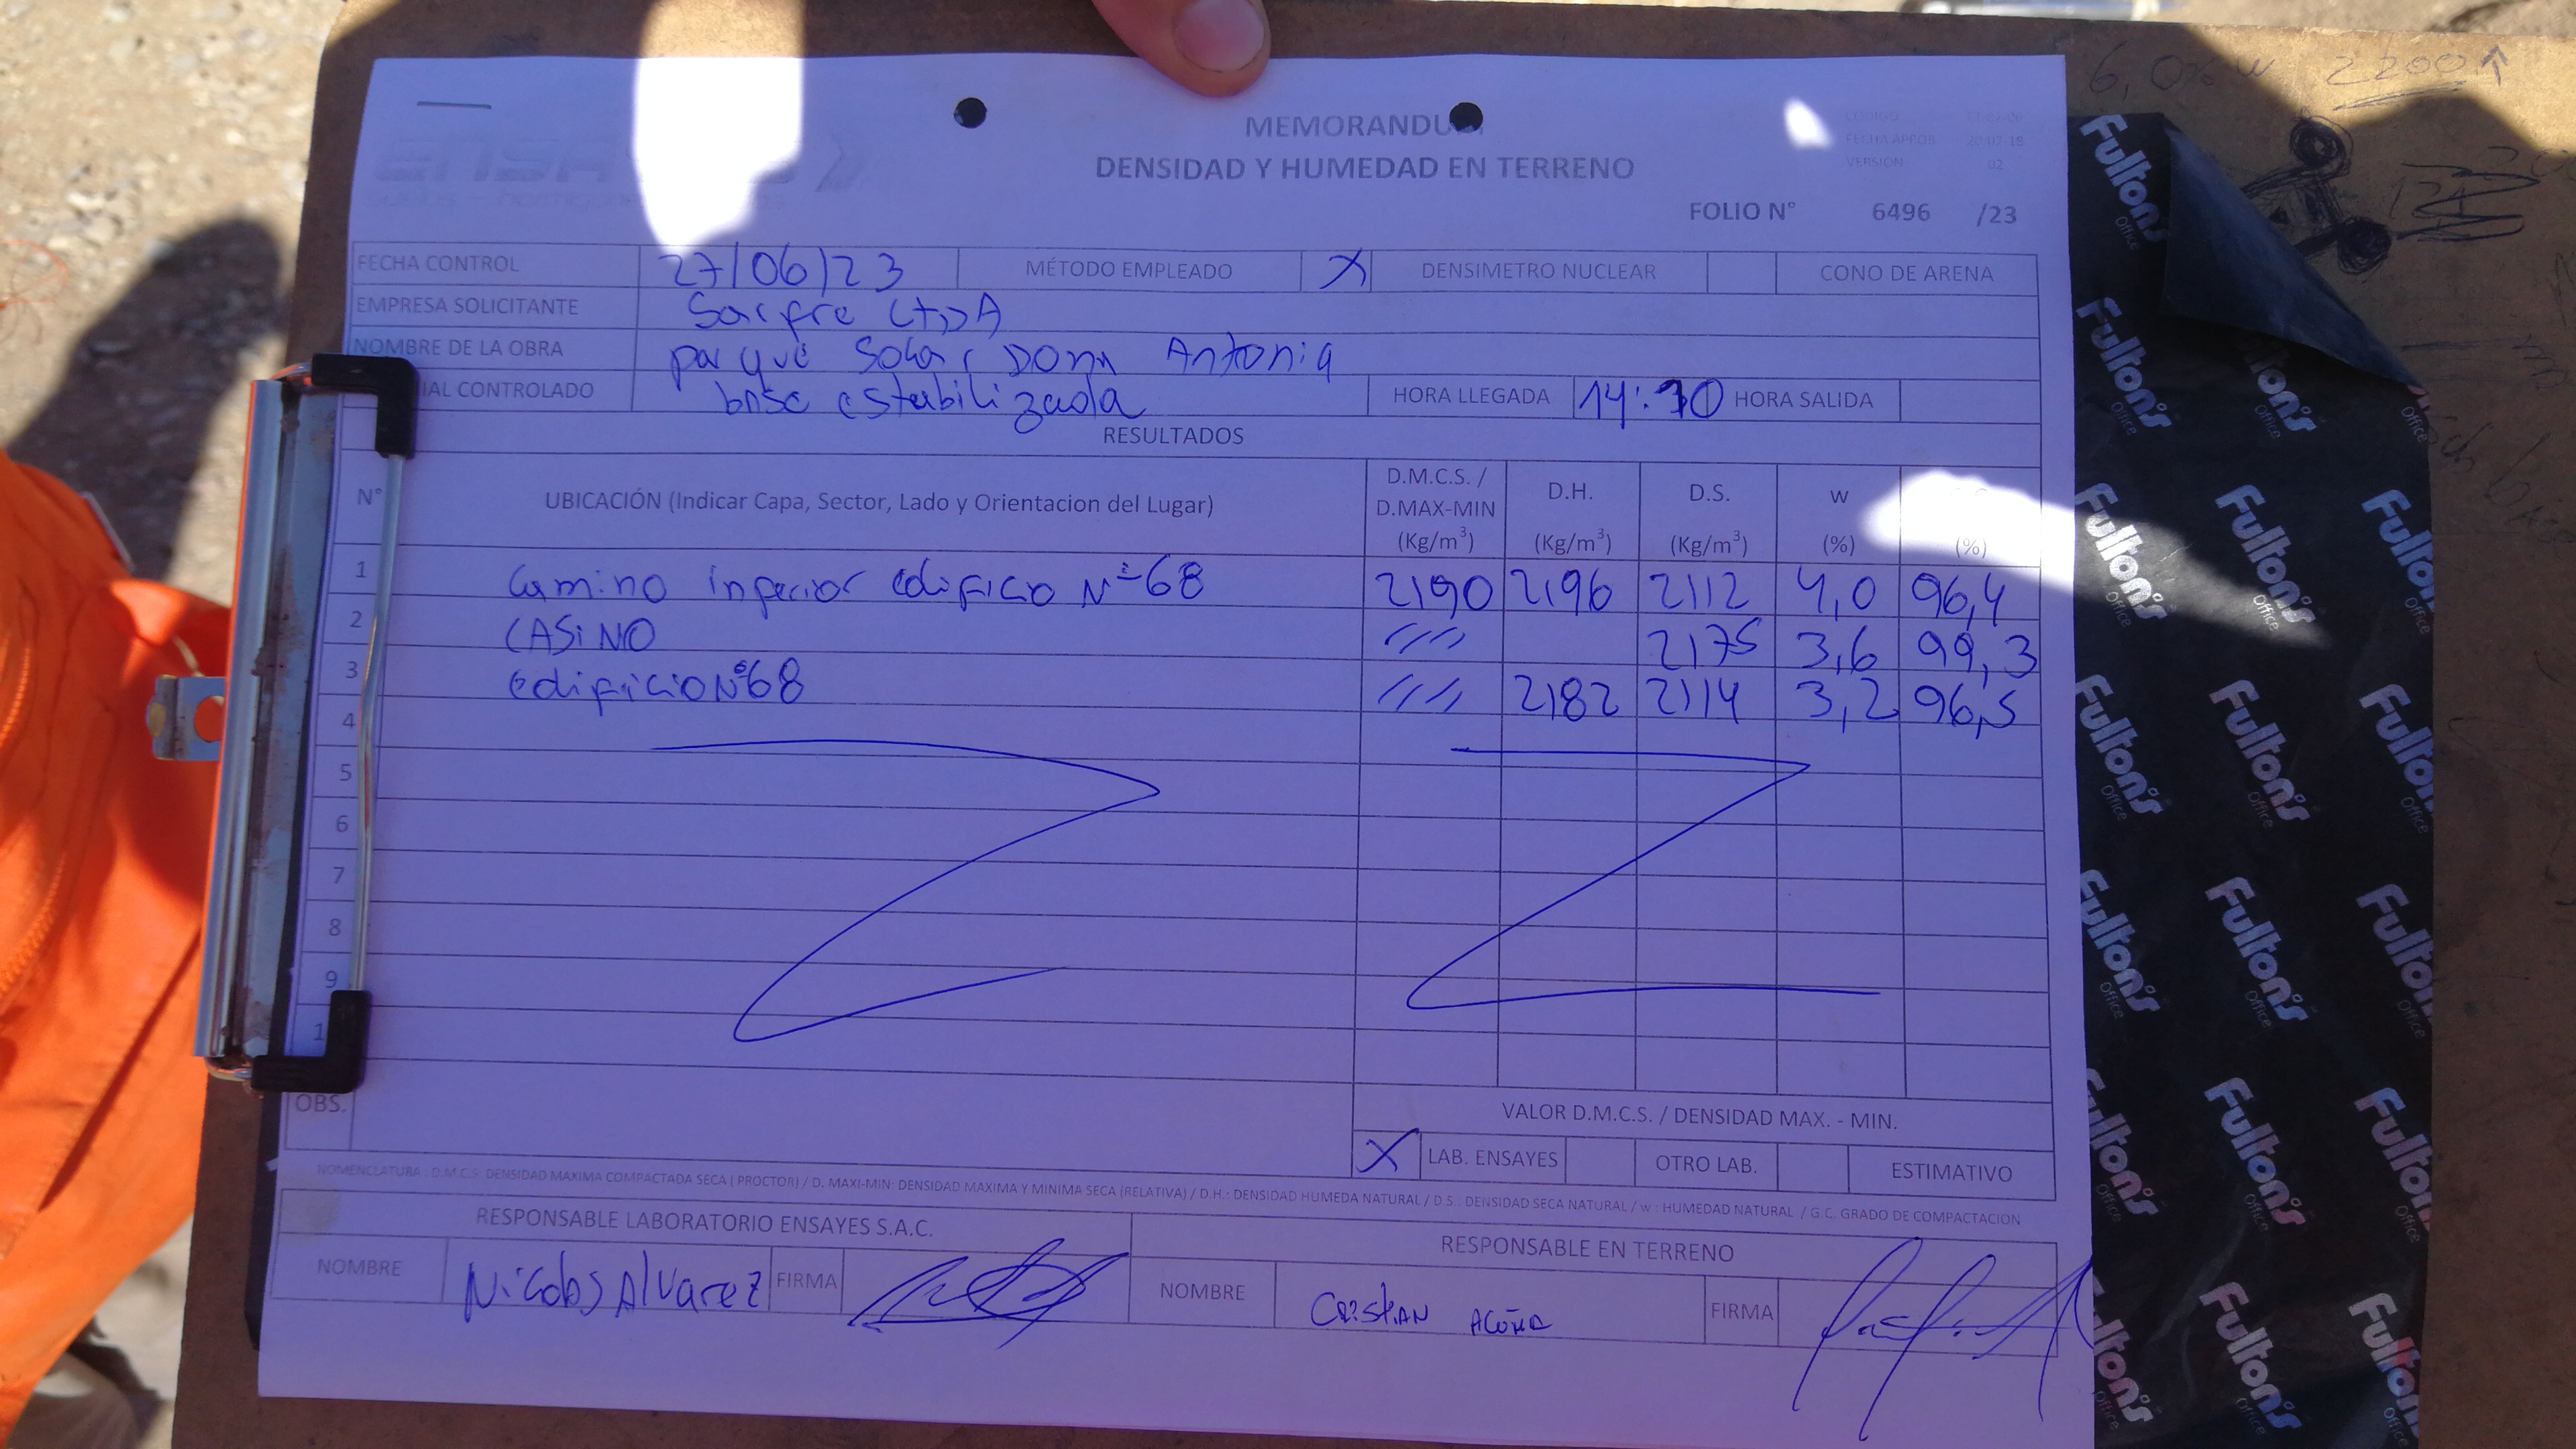 MEMORANDU
DENSIDAD Y HUMEDAD EN TERRENO
CODIGO
FECHA APROB 20-07-18
VERSIÓN 02
FOLIO N° 6496 /23
FECHA CONTROL 27/06/23 MÉTODO EMPLEADO X DENSIMETRO NUCLEAR CONO DE ARENA
EMPRESA SOLICITANTE Sarfre LtDA
NOMBRE DE LA OBRA parque Solar Dona Antonia
IAL CONTROLADO base estabilizada HORA LLEGADA 14:10 HORA SALIDA
RESULTADOS
N° UBICACIÓN (Indicar Capa, Sector, Lado y Orientacion del Lugar) D.M.C.S. / D.MAX-MIN (Kg/m³) D.H. (Kg/m³) D.S. (Kg/m³) w (%) (%)
1 Camino inferior edificio N°68 2190 2196 2112 4,0 96,4
2 CASiNO //// 2175 3,6 99,3
3 edificio N°68 //// 2182 2114 3,2 96,5
4
5
6
7
8
9
1
OBS.
VALOR D.M.C.S. / DENSIDAD MAX. - MIN.
X LAB. ENSAYES OTRO LAB. ESTIMATIVO
NOMENCLATURA : D.M.C.S: DENSIDAD MAXIMA COMPACTADA SECA ( PROCTOR) / D. MAXI-MIN: DENSIDAD MAXIMA Y MINIMA SECA (RELATIVA) / D.H.: DENSIDAD HUMEDA NATURAL / D.S : DENSIDAD SECA NATURAL / w : HUMEDAD NATURAL / G.C. GRADO DE COMPACTACION
RESPONSABLE LABORATORIO ENSAYES S.A.C. RESPONSABLE EN TERRENO
NOMBRE Nicolas Alvarez FIRMA NOMBRE CRISTIAN ACUÑA FIRMA
6,0% w 2200↑
Fulton's Office